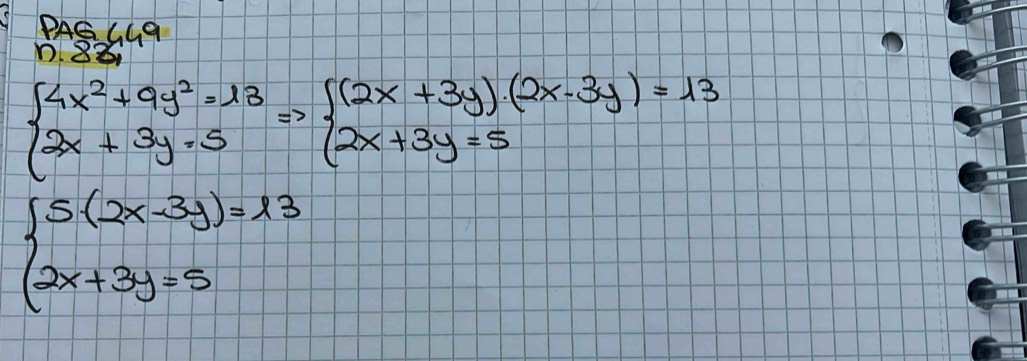 PAG. 449
n. 83
{4x² + 9y² = 13 => {(2x + 3y)·(2x - 3y) = 13
{2x + 3y = 5 {2x + 3y = 5
{5·(2x - 3y) = 13
{2x + 3y = 5